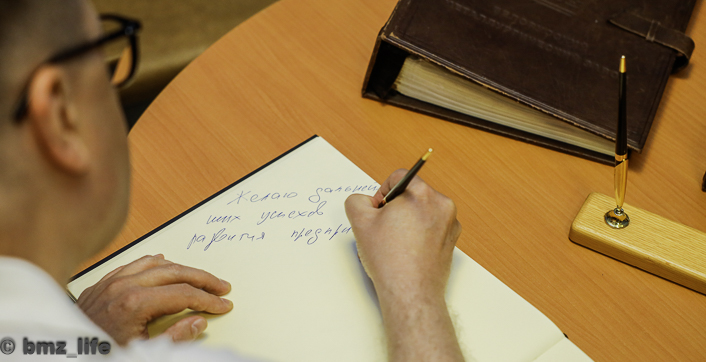 Желаю дальней
ших успехов
развития предпри
© bmz_life